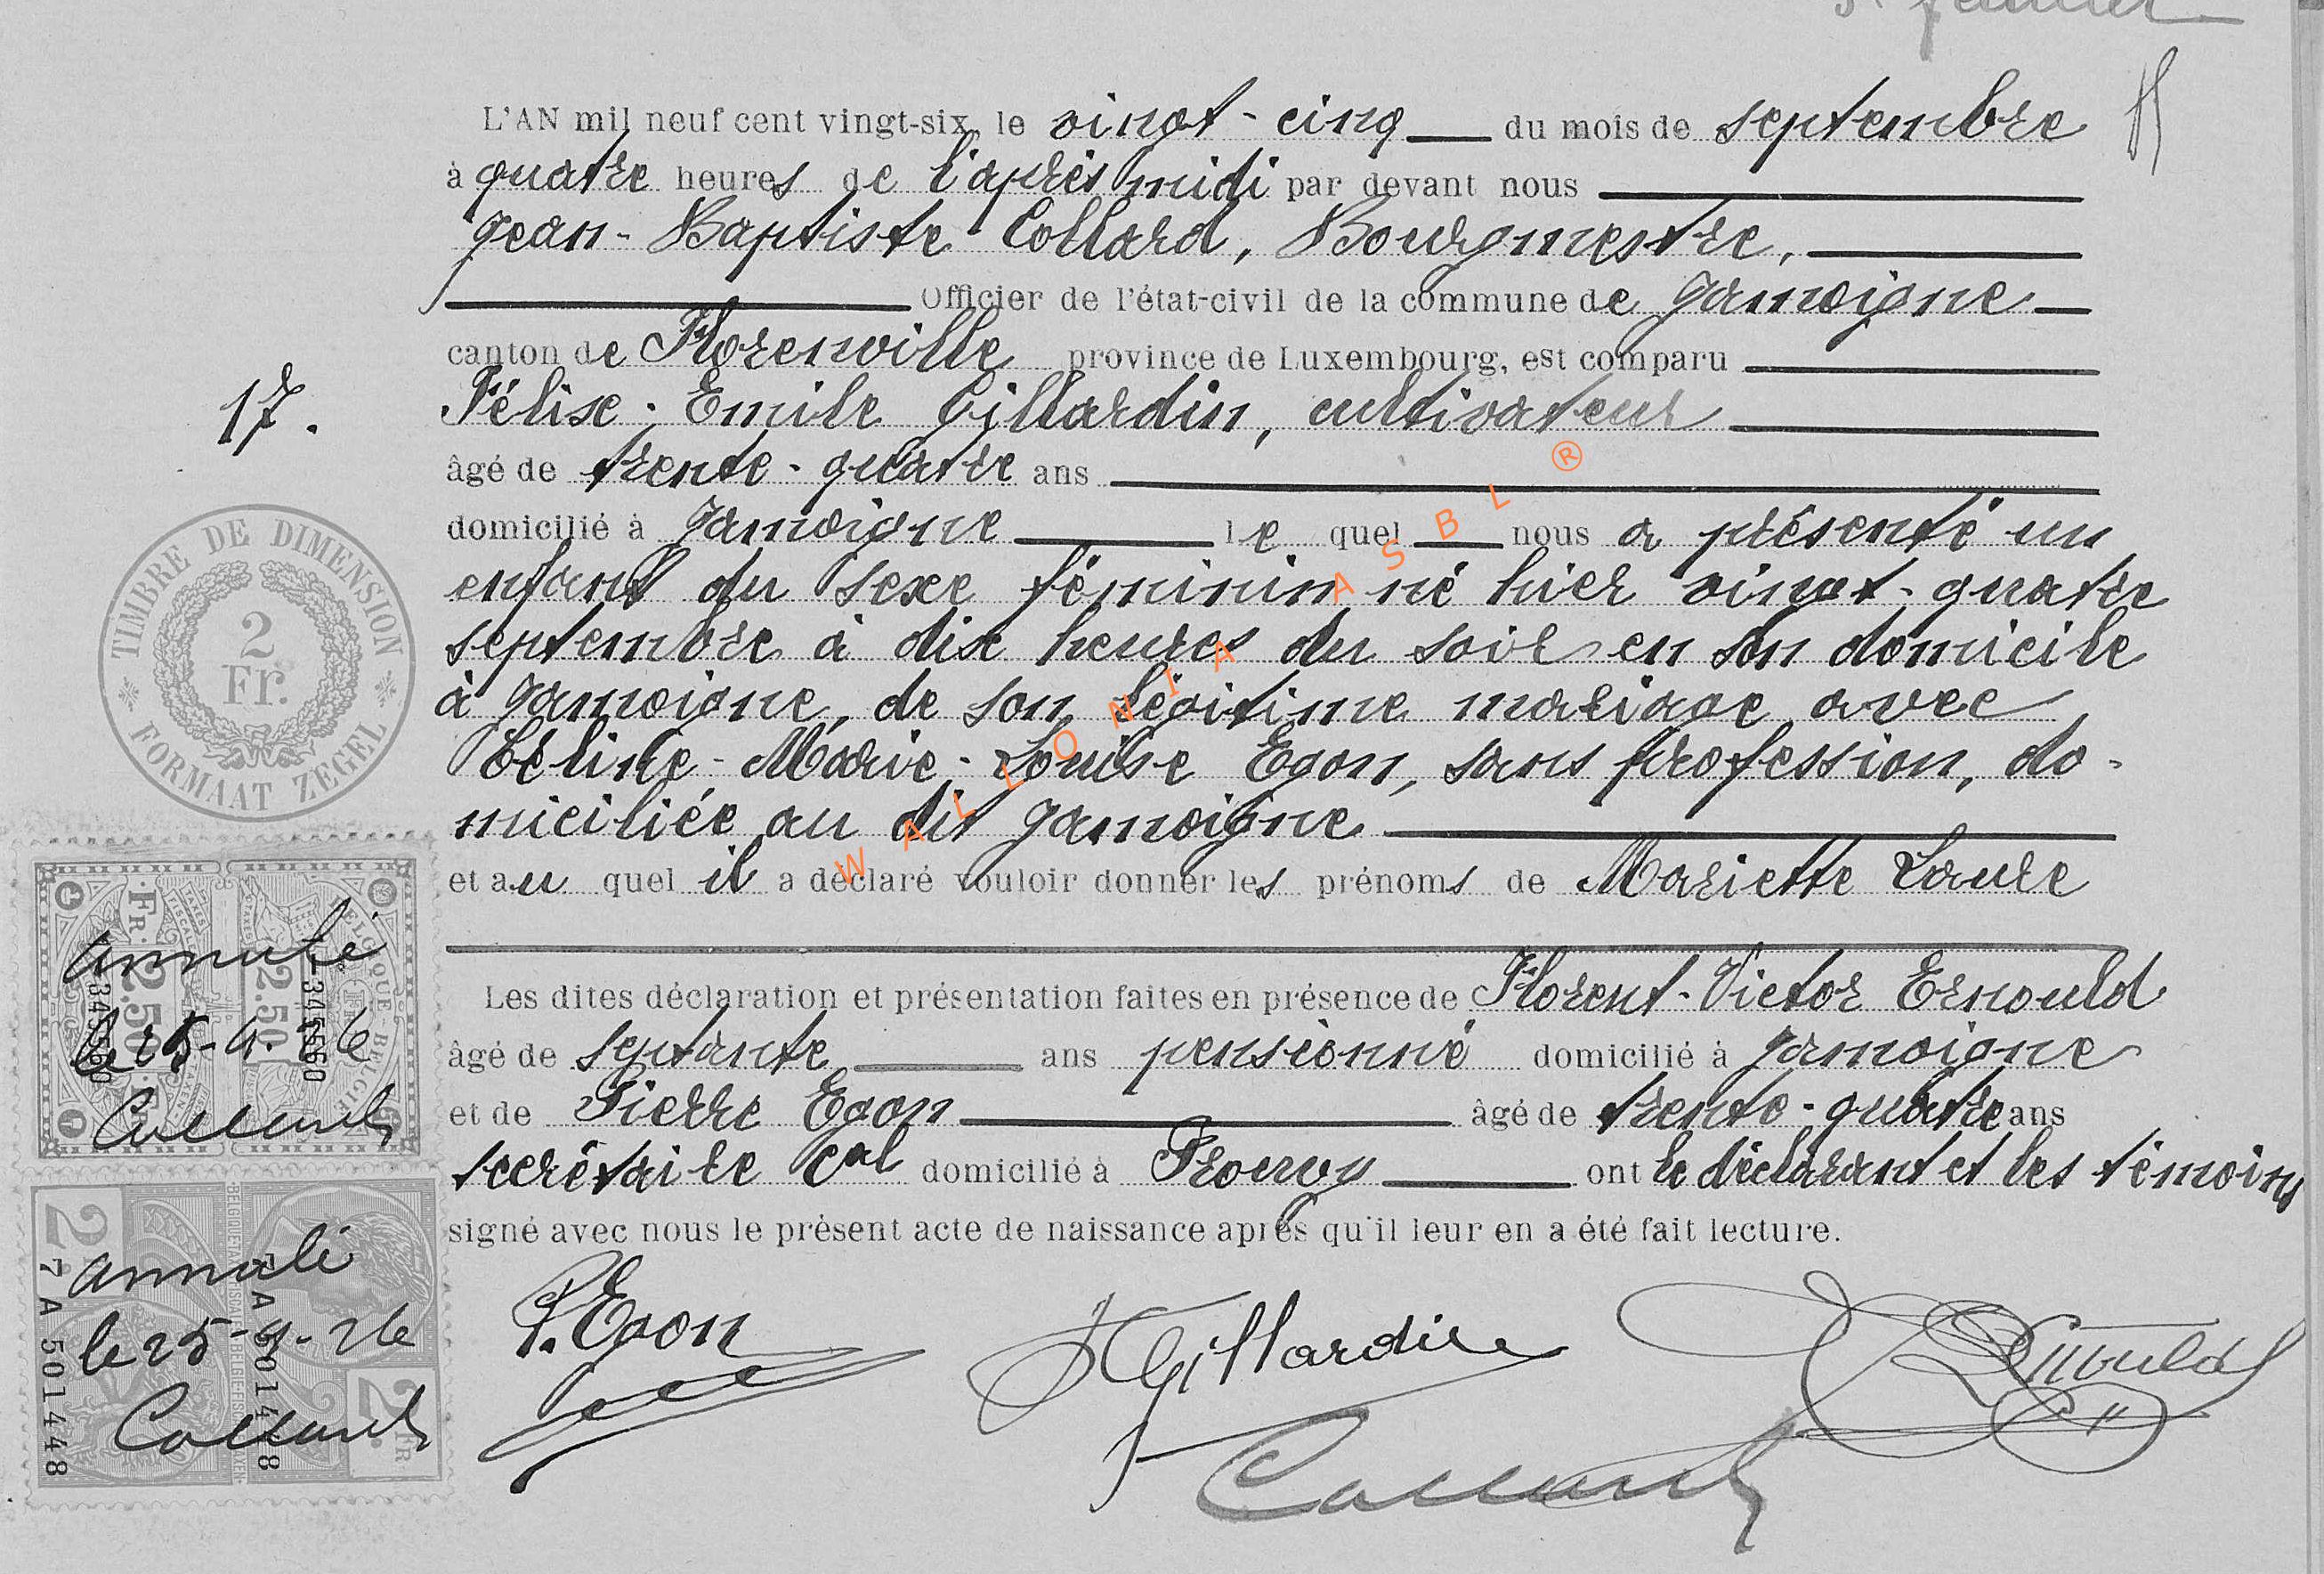 feuillet
L'AN mil neuf cent vingt-six, le vingt-cinq du mois de septembre
à quatre heures de l'après midi par devant nous
Jean-Baptiste Collard, Bourgmestre,
Officier de l'état-civil de la commune de Jamoigne
canton de Florenville province de Luxembourg, est comparu
17.
Félise-Emile Gillardin, cultivateur
âgé de trente-quatre ans
domicilié à Jamoigne le quel nous a présenté un
enfant du sexe féminin né hier vingt-quatre
septembre à dix heures du soir en son domicile
à Jamoigne, de son légitime mariage avec
Céline-Marie-Louise Egon, sans profession, do-
miciliée au dit Jamoigne
et au quel il a déclaré vouloir donner les prénoms de Mariette Laure
Les dites déclaration et présentation faites en présence de Florent-Victor Ernould
âgé de septante ans pensionné domicilié à Jamoigne
et de Pierre Egon âgé de trente-quatre ans
secrétaire cal domicilié à Prouvy ont le déclarant et les témoins
signé avec nous le présent acte de naissance après qu'il leur en a été fait lecture.
P. Egon
F Gillardin
Ernould
Collard
TIMBRE DE DIMENSION
2
Fr.
FORMAAT ZEGEL
FR. 2.50
2.50
345560
345560
annulé
le 25-9-26
Collard
2
7 A 501448
7 A 501448
2 FR
annulé
le 25-9-26
Collard
WALLONIA ASBL ®